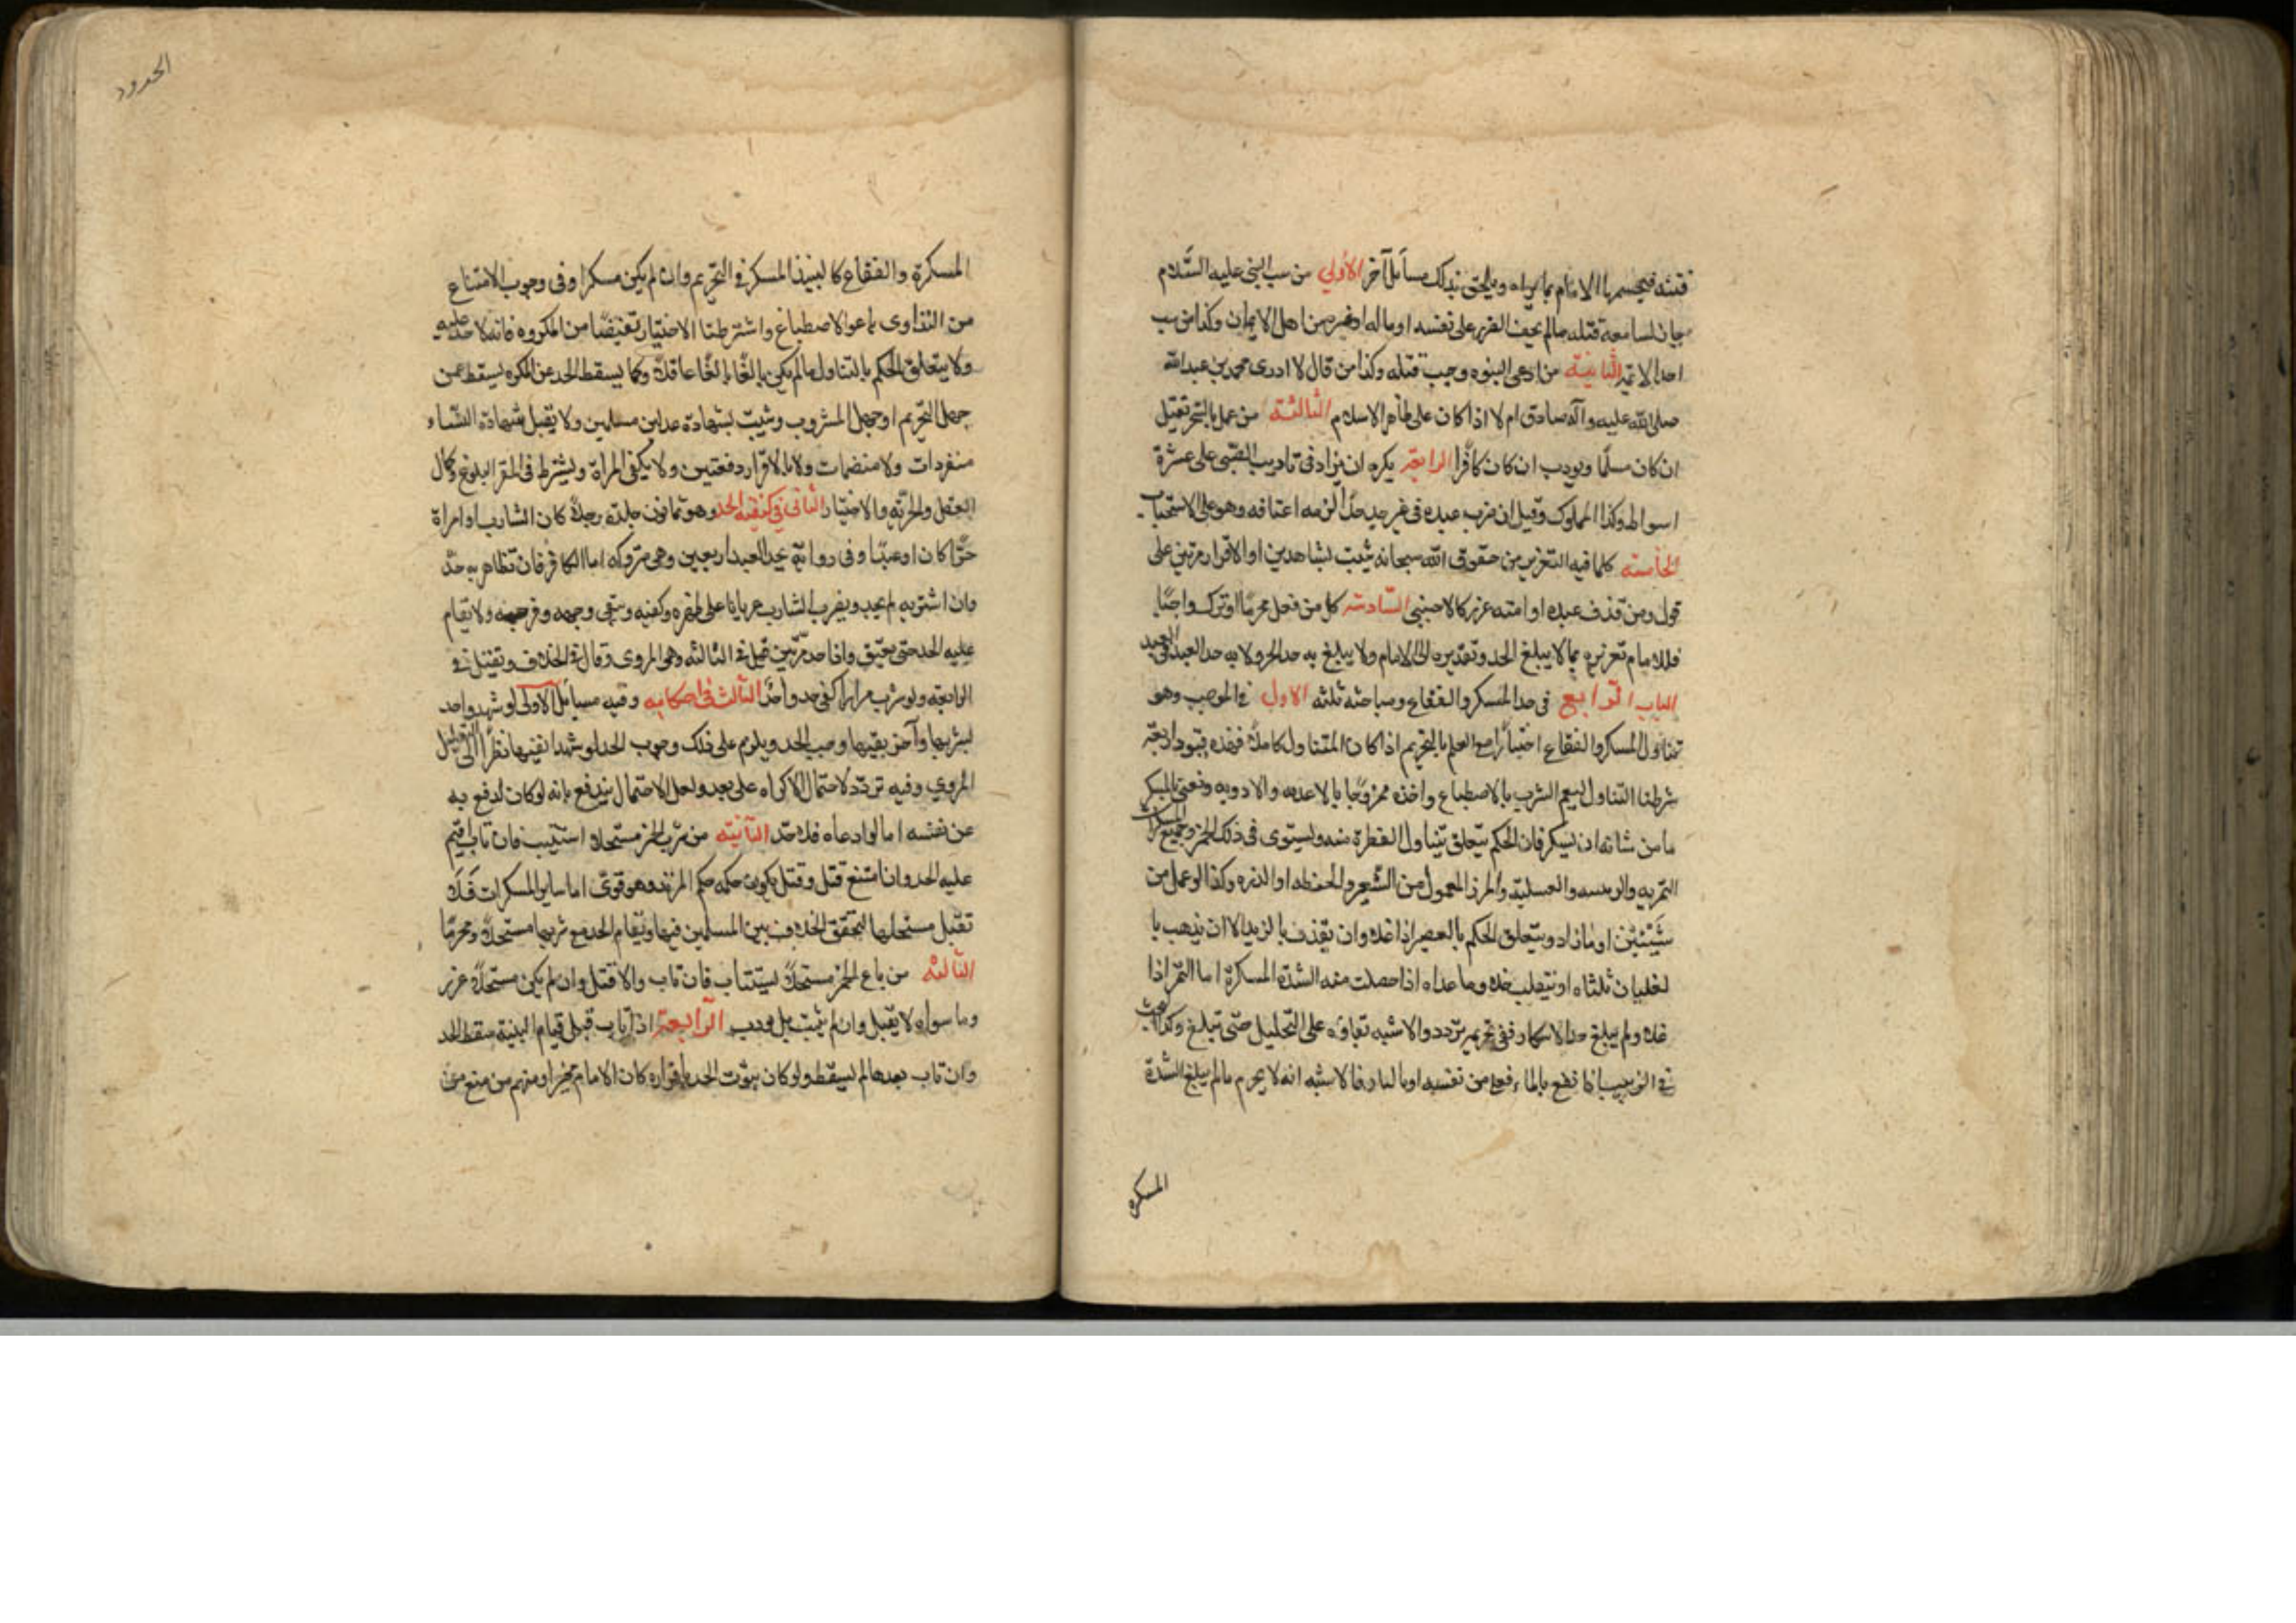 فتنة فيحسمها الامام بما يراه ويلحق بذلك مسائل آخر الأولى من سب النبي عليه السلام
جاز لسامعه قتله مالم يخف الضرر على نفسه او ماله او غيره من اهل الايمان وكذا من سب
احد الائمة الثانية من ادعى النبوه وجب قتله وكذا من قال لا ادرى محمد بن عبدالله
صلى الله عليه وآله صادق ام لا اذا كان على ظاهر الاسلام الثالثة من عمل بالسحر تقتل
ان كان مسلمًا ويودب ان كان كافرًا الرابعة يكره ان يزاد في تاديب الصبي على عشرة
اسواط وكذا المملوك وقيل ان ضرب عبده في غير حد حدًا لزمه اعتاقه وهو على الاستحباب
الخامسة كلما فيه التعزير من حقوق الله سبحانه يثبت بشاهدين او الاقرار مرتين على
قول ومن قذف عبده او امته عزر كالاجنبي السادسة كل من فعل محرمًا او ترك واجبًا
فللامام تعزيره بما لا يبلغ الحد وتقديره الى الامام ولا يبلغ به حد الحر ولا به حد العبد في العبد
الباب الرابع في حد المسكر والفقاع ومباحثه ثلثه الاول في الموجب وهو
تناول المسكر والفقاع اختيارًا مع العلم بالتحريم اذا كان المتناول كاملاً فهذه قيود اربعة
شرطنا التناول ليعم الشرب بالاصطباغ واخذه ممزوجًا بالاغذيه والادويه ونعني بالمسكر
ما من شانه ان يسكر فان الحكم يتعلق بتناول القطرة منه ويستوى في ذلك الخمر وجميع المسكرات
التمريه والزبيبيه والعسلية والمزر المعمول من الشعير والحنطه او الذره وكذا لو عمل من
شيئين او مازاد ويتعلق الحكم بالعصير اذا غلا وان يقذف بالزبد الا ان يذهب با
لغليان ثلثاه او ينقلب خلا وما عداه اذا حصلت منه الشدة المسكرة اما التمر اذا
غلا ولم يبلغ حد الاسكار ففي تحريمه تردد والاشبه بقاؤه على التحليل حتى تبلغ وكذا البحث
في الزبيب اذا نقع بالماء فغلى من نفسه او بالنار فالاشبه انه لا يحرم مالم يبلغ الشدة
المسكرة
الحدود
المسكرة والفقاع كالنبيذ المسكر في التحريم وان لم يكن مسكرا وفي وجوب الامتناع
من التداوى به والاصطباغ واشترطنا الاختيار تفصيًا من المكروه فانه لا حد عليه
ولا يتعلق الحكم بالتناول مالم يكن بالغًا بالغًا عاقلاً وكما يسقط الحد عن المكره يسقط عمن
جهل التحريم او جهل المشروب ويثبت بشهادة عدلين مسلمين ولا يقبل شهادة النساء
منفردات ولا منضمات ولا بالاقرار دفعتين ولا يكفي المراة ويشترط في المقر البلوغ وكمال
العقل والحرية والاختيار الثاني في كيفية الحد وهو ثمانون جلدة رجلاً كان الشارب او امراة
حرًا كان او عبدًا وفي رواية يحد العبد اربعين وهي متروكه اما الكافر فان تظاهر به حد
وان استتر به لم يحد ويضرب الشارب عريانا على ظهره وكتفيه ويتقى وجهه وفرجه ولا يقام
عليه الحد حتى يفيق واذا حد مرتين قتل في الثالثه وهو المروى وقال في الخلاف ويقتل في
الرابعة ولو شرب مرارا كفى حد واحد الثالث في احكامه وفيه مسائل الاولى لو شهد واحد
بشربها وآخر بقيئها وجب الحد ويلزم على ذلك وجوب الحد لو شهدا بقيئها نظرًا الى التعليل
المروي وفيه تردد لاحتمال الاكراه على بعد ولعل الاحتمال يندفع بانه لو كان لدفع به
عن نفسه اما لو ادعاه فلا حد الثانية من شرب الخمر مستحلا استتيب فان تاب اقيم
عليه الحد وان امتنع قتل وقتل يكون حكمه حكم المرتد وهو قوى اما ساير المسكرات فلا
تقتل مستحلها لتحقق الخلاف بين المسلمين فيها ويقام الحد مع شربها مستحلاً ومحرمًا
الثالثة من باع الخمر مستحلاً يستتاب فان تاب والا قتل وان لم يكن مستحلاً عزر
وما سواه لا يقتل وان لم يتب بل يودب الرابعة اذا تاب قبل قيام البينة سقط الحد
وان تاب بعدها لم يسقط ولو كان ثبوت الحد باقراره كان الامام مخيرا ومنهم من منع من